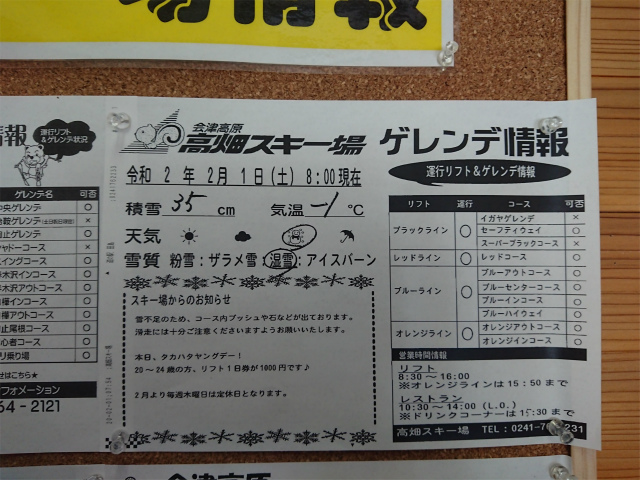 情報
運行リフト
&ゲレンデ状況
ゲレンデ名 可否
中央ゲレンデ ○
シャドーコース ×
会津高原
高畑スキー場 ゲレンデ情報
運行リフト&ゲレンデ情報
令和 2 年 2月 1日(土) 8:00現在
積雪 35 cm 気温 -1 ℃
天気
雪質 粉雪:ザラメ雪:湿雪:アイスバーン
スキー場からのお知らせ
雪不足のため、コース内ブッシュや石などが出ております。
滑走には十分ご注意くださいますようお願いいたします。
本日、タカハタヤングデー!
20~24歳の方。リフト1日券が1000円です♪
2月より毎週木曜日は定休日となります。
リフト 運行 コース 可否
ブラックライン ○ イガヤゲレンデ ×
セーフティウェイ ○
スーパーブラックコース ×
レッドライン ○ レッドコース ○
ブルーライン ○ ブルーアウトコース ○
ブルーセンターコース ○
ブルーインコース ○
ブルーハイウェイ ○
オレンジライン ○ オレンジアウトコース ○
オレンジインコース ○
営業時間情報
リフト
8:30 ~ 16:00
※オレンジラインは15:50まで
レストラン
10:30 ~ 14:00 (L.O.)
※ドリンクコーナーは15:30まで
高畑スキー場 TEL:0241-7
231
フォメーション
64-2121
会津高原